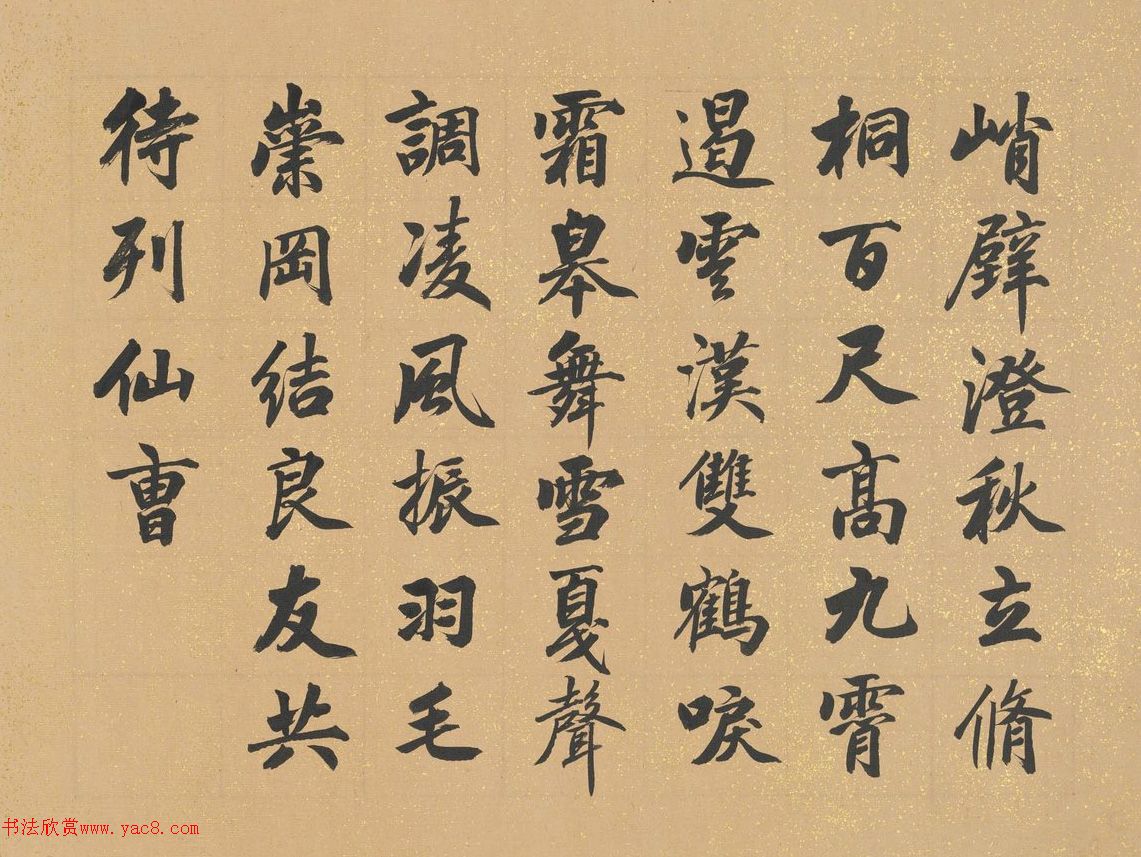 峭壁澄秋立脩
桐百尺高九霄
遏雲漢雙鶴唳
霜皋舞雪戛聲
調凌風振羽毛
崇岡結良友共
待列仙曹
书法欣赏www.yac8.com